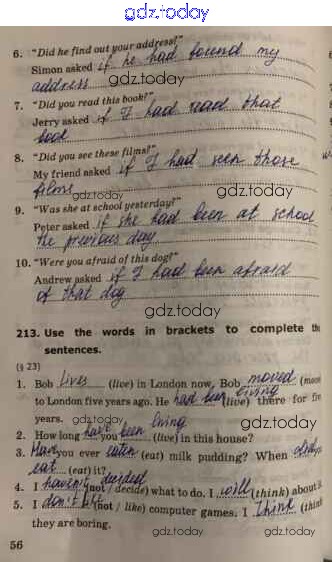 gdz.today
6. "Did he find out your address?"
Simon asked if he had found my
address gdz.today
7. "Did you read this book?"
Jerry asked if I had read that
book gdz.today
8. "Did you see these films?"
My friend asked if I had seen those
films gdz.today
9. "Was she at school yesterday?"
Peter asked if she had been at school
the previous day gdz.today
10. "Were you afraid of this dog?"
Andrew asked if I had been afraid
of that dog
gdz.today
213. Use the words in brackets to complete the
sentences.
(§ 23) gdz.today
1. Bob lives (live) in London now. Bob moved (move
to London five years ago. He had been living (live) there for five
years. gdz.today
2. How long have you been living (live) in this house?
3. Have you ever eaten (eat) milk pudding? When did you
eat (eat) it? gdz.today
4. I haven't decided (not / decide) what to do. I will (think) about it.
5. I don't like (not / like) computer games. I think (think
they are boring. gdz.today gdz.today
56